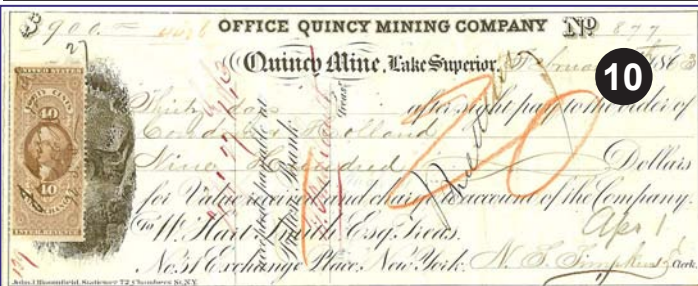 $900.— OFFICE QUINCY MINING COMPANY No 877
27
Quincy Mine, Lake Superior, 1863
10
UNITED STATES
10
10
Thirty days after sight pay to the order of
Holland
Nine Hundred Dollars
for Value received and charge to account of the Company.
To W. Hart Smith Esq. Treas.
Apr 1
No. 31 Exchange Place, New York. N. S. Simpkins Clerk.
John J Bloomfield, Stationer 72 Chambers St. N.Y.
Accepted payable at
Bank
Treasr
20